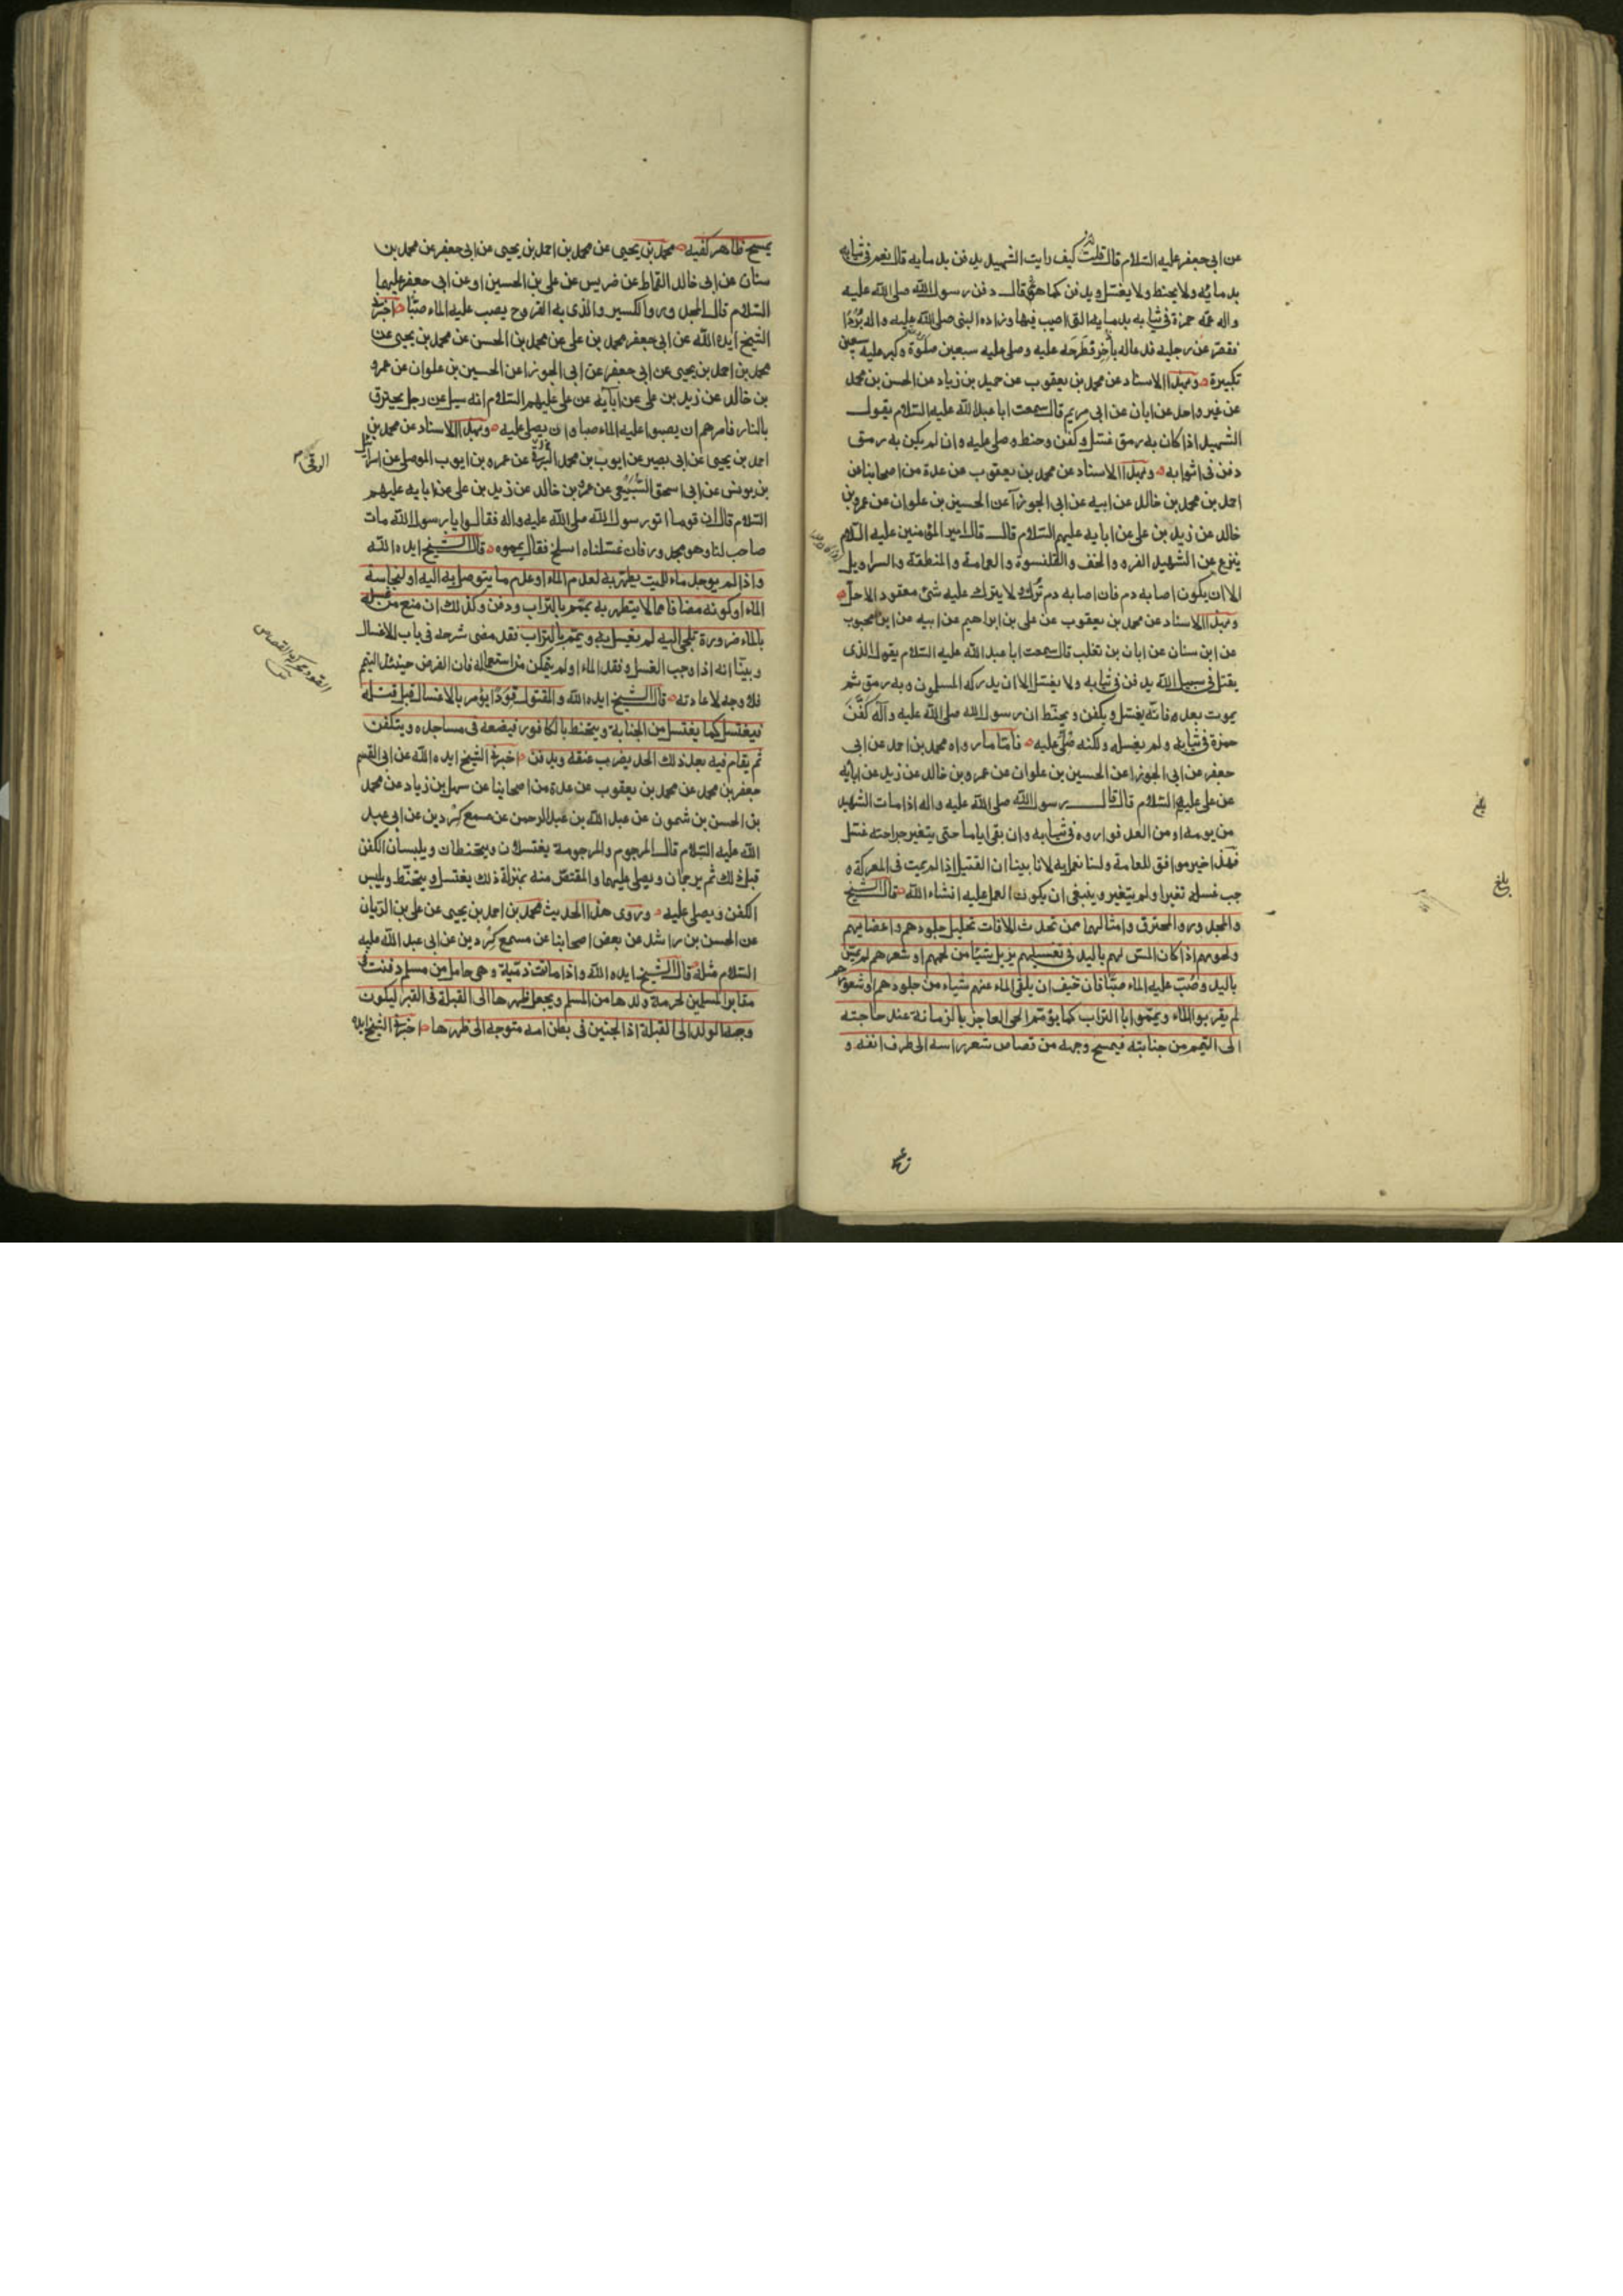 عن ابى جعفر عليه السّلام قال قلت كيف رايت الشهيد يدفن بدمايه قال نعم فى ثيابه
بدمائه ولا يحنط ولا يغسّل ويدفن كما هو ثم قال دفن رسول اللّه صلى اللّه عليه
واله عمّه حمزة فى ثيابه بدمايه التى اصيب فيها وزاده النبى صلى اللّه عليه واله بُرْدًا
فقصر عن رجليه فدعا له باذخر فطرحه عليه وصلى عليه سبعين صلوة وكبر عليه سبعين
تكبيرة وبهذا الاسناد عن محمد بن يعقوب عن حميد بن زياد عن الحسن بن محمد
عن غير واحد عن ابان عن ابى مريم قال سمعت ابا عبد اللّه عليه السّلام يقول
الشهيد اذا كان به رمق غسّل وكفن وحنط وصلى عليه وان لم يكن به رمق
دفن فى اثوابه وبهذا الاسناد عن محمد بن يعقوب عن عدة من اصحابنا عن
احمد بن محمد بن خالد عن ابيه عن ابى الجوزآ عن الحسين بن علوان عن عمرو بن
خالد عن زيد بن على عن ابايه عليهم السّلام قال قال امير المؤمنين عليه السّلام
ينزع عن الشهيد الفرو والخف والقلنسوة والعمامة والمنطقة والسراويل
الا ان يكون اصابه دم فان اصابه دم تُرك ولا يترك عليه شئ معقود الا حلّ
وبهذا الاسناد عن محمد بن يعقوب عن على بن ابراهيم عن ابيه عن ابن محبوب
عن ابن سنان عن ابان بن تغلب قال سمعت ابا عبد اللّه عليه السّلام يقول الذى
يقتل فى سبيل اللّه يدفن فى ثيابه ولا يغسّل الا ان يدركه المسلمون وبه رمق ثم
يموت بعد ه فانّه يغسّل ويكفن ويحنّط ان رسول اللّه صلى اللّه عليه وآله كَفَّن
حمزة فى ثيابه ولم يغسله ولكنه صُلّى عليه فامّا ما رواه محمد بن احمد عن ابى
جعفر عن ابى الجوزا عن الحسين بن علوان عن عمرو بن خالد عن زيد عن ابائه
عن على عليهم السّلام قال قال رسول اللّه صلى اللّه عليه واله اذا مات الشهيد
من يومه او من الغد فواروه فى ثيابه وان بقى اياما حتى يتغير جراحته غسّل
فهذا خبر موافق للعامة ولسنا نعمل به لانا بينا ان القتيل اذا لم يمت فى المعركة و
جب غسله تغير او لم يتغير وينبغى ان يكون العمل عليه انشاء اللّه قال الشيخ
والمجدور والمحترق وامثالهما ممن تحدث الافات تحليل جلودهم واعضايهم
ولحومهم اذا كان المسّ لهم باليد فى تغسيلهم يزيل شيئا من لحمهم او شعرهم لم يمسّ
باليد وصُبّ عليه الماء صبّا فان خيف ان يلقى الماء عنهم شياء من جلودهم او شعورهم
لم يقربوا الماء ويمّموا بالتراب كما يؤمّم الحى العاجز بالزمانة عند حاجته
الى التيمم من جنابته فيمسح وجهه من قصاص شعر راسه الى طرف انفه و
بلغ
بلغ
يمسح ظاهر كفيه محمد بن يحيى عن محمد بن احمد بن يحيى عن ابى جعفر عن محمد بن
سنان عن ابى خالد القماط عن ضريس عن على بن الحسين او عن ابى جعفر عليهما
السّلام قال المجدور والكسير والذى به القروح يصب عليه الماء صبّا اخبرنى
الشيخ ايده اللّه عن ابى جعفر محمد بن على عن محمد بن الحسن عن محمد بن يحيى عن
محمد بن احمد بن يحيى عن ابى جعفر عن ابى الجوزا عن الحسين بن علوان عن عمرو
بن خالد عن زيد بن على عن آبايه عن على عليهم السّلام انه سيل عن رجل يحترق
بالنار فامرهم ان يصبوا عليه الماء صبا وان يصلى عليه وبهذا الاسناد عن محمد بن
احمد بن يحيى عن ابى بصير عن ايوب بن محمد عن عمرو بن ايوب الموصلى عن اسرائيل
بن يونس عن ابى اسحق السَّبِيعى عن عمرو بن خالد عن زيد بن على عن ابايه عليهم
السّلام قال ان قوما اتو رسول اللّه صلى اللّه عليه واله فقالوا يا رسول اللّه مات
صاحب لنا وهو مجدور فان غسّلناه انسلخ فقال يمموه قال الشيخ ايده اللّه
واذا لم يوجد ماء للميت يطهر به لعدم الماء او عدم ما يتوصل به اليه او لنجاسة
الماء او كونه مضافا مما لا يتطهر به يمّم بالتراب ودفن وكذلك ان منع من غسله
بالماء ضرورة تلجى اليه لم يغسل به ويمّم بالتراب فقد مضى شرحه فى باب الاغسال
وبينّا انه اذا وجب الغسل وفقد الماء او لم يتمكن من استعماله فان الفرض حينئذ التيمم
فلا وجه لاعادته قال الشيخ ايده اللّه والمقتول قَوَدًا يؤمر بالاغتسال قبل قتله
فيغتسل كما يغتسل من الجنابة ويتحنط بالكافور فيضعه فى مساجده ويتكفن
ثم يقام فيه بعد ذلك الحد يضرب عنقه ويدفن اخبرنى الشيخ ايده اللّه عن ابى القسم
جعفر بن محمد عن محمد بن يعقوب عن عدة من اصحابنا عن سهل بن زياد عن محمد
بن الحسن بن شمون عن عبد اللّه بن عبد الرحمن عن مسمع كِرْدين عن ابى عبد
اللّه عليه السّلام قال المرجوم والمرجومة يغتسلان ويتحنطان ويلبسان الكفن
قبل ذلك ثم يرجمان ويصلى عليهما والمقتصّ منه بمنزلة ذلك يغتسل ويتحنّط ويلبس
الكفن ويصلى عليه وروى هذا الحديث محمد بن احمد بن يحيى عن على بن الريّان
عن الحسن بن راشد عن بعض اصحابنا عن مسمع كِرْدين عن ابى عبد اللّه عليه
السّلام مثله قال الشيخ ايده اللّه واذا ماتت ذميّة وهى حامل من مسلم دفنت فى
مقابر المسلمين لحرمة ولدها من المسلم ويجعل ظهرها الى القبلة فى القبر ليكون
وجه الولد الى القبلة اذ الجنين فى بطن امه متوجه الى ظهرها اخبرنى الشيخ ايده
الرقى
القود محركة القصاص